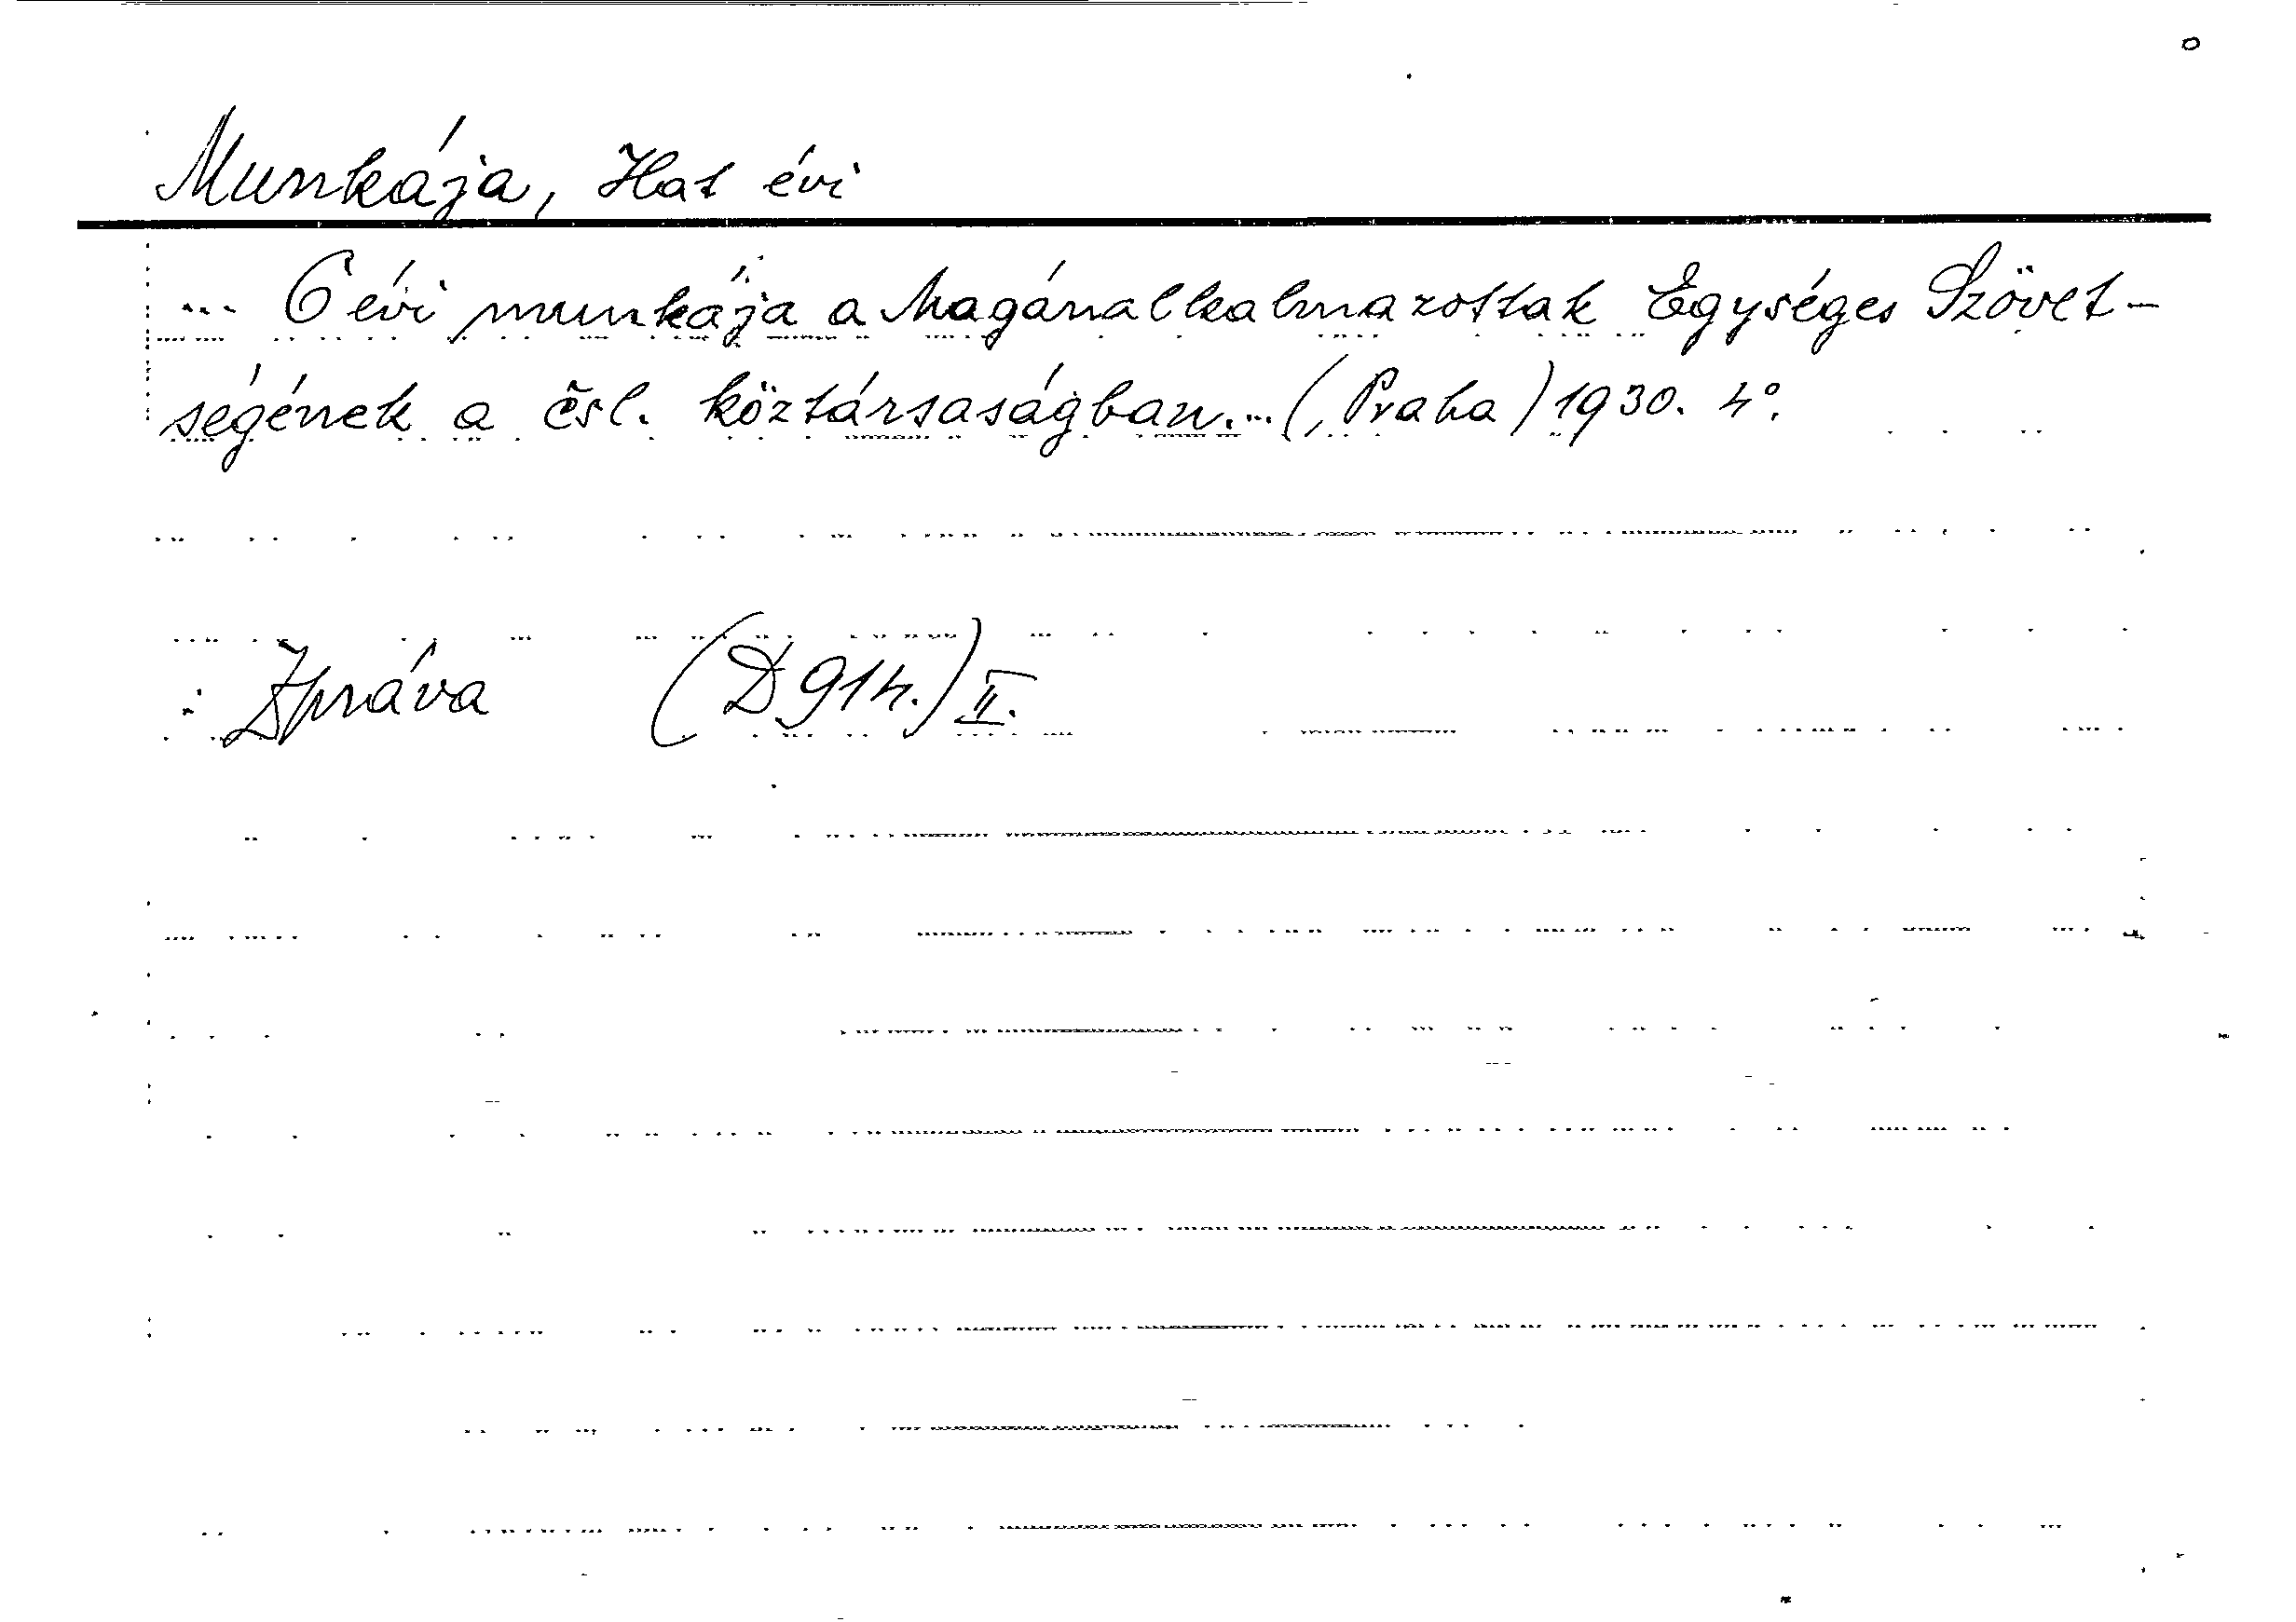 Munkája, Hat évi
... 6 évi munkája a Magánalkalmazottak Egységes Szövet-
ségének a čsl. köztársaságban...(, Praha) 1930. 4°.
: Zpráva (D 914.) II.